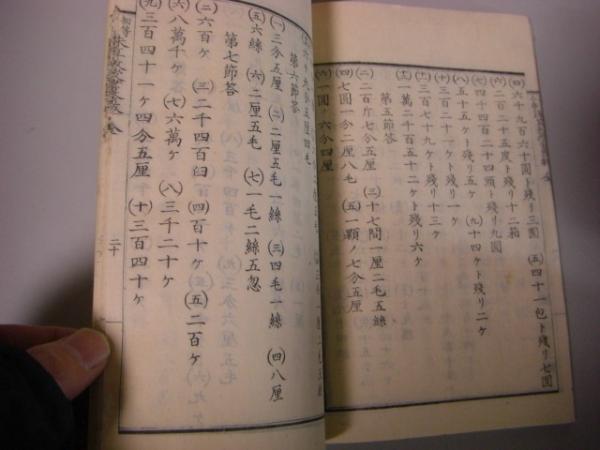 (四)六十九百六十圓ト殘リ三圓 (五)四十一包ト殘リ七圓
(六)二百二十五度ト殘リ十二箱
(七)四十四百二十四頭ト殘リ九圓
(八)五十五ケト殘リ五ケ (九)十四ケト殘リ二ケ
(十)二百十一ケト殘リ一ケ
(十一)三百七十九ケト殘リ十三ケ
(十二)一萬二千百五十二ケト殘リ六ケ
第五節答
(二)二百斤七分五厘 (三)十七間一厘二毛五絲
(四)七圓一分二厘八毛 (五)一顆ノ七分五厘
(六)一圓ノ六分四厘
第六節答
(一)三分五厘 (二)二厘五毛一絲 (三)四毛一絲 (四)八厘
(五)六絲 (六)二厘五毛 (七)一毛二絲五忽
第七節答
(二)六百ケ (三)二千四百臼 (四)四百十ケ (五)二百ケ
(六)八萬千ケ (七)六萬ケ (八)三千二十ケ
(九)三百四十一ケ四分五厘 (十)三百四十ケ
初等
二十